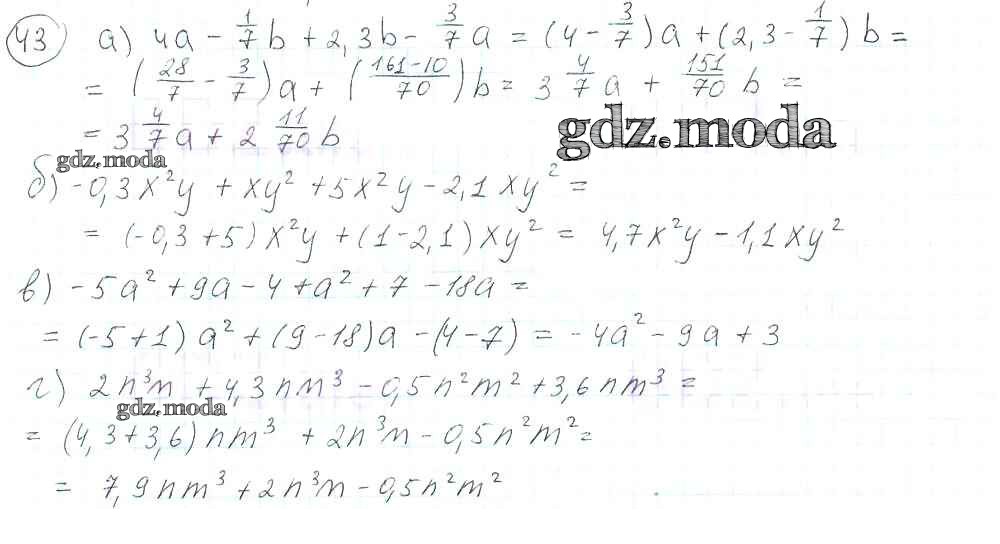 43 а) 4a - 1/7 b + 2,3b - 3/7 a = (4 - 3/7)a + (2,3 - 1/7)b =
= (28/7 - 3/7)a + ((161-10)/70)b = 3 4/7 a + 151/70 b =
= 3 4/7 a + 2 11/70 b
gdz.moda
gdz.moda
б) -0,3x²y + xy² + 5x²y - 2,1xy² =
= (-0,3+5)x²y + (1-2,1)xy² = 4,7x²y - 1,1xy²
в) -5a² + 9a - 4 + a² + 7 - 18a =
= (-5+1)a² + (9-18)a - (4-7) = -4a² - 9a + 3
г) 2n³m + 4,3nm³ - 0,5n²m² + 3,6nm³ =
gdz.moda
= (4,3+3,6)nm³ + 2n³m - 0,5n²m² =
= 7,9nm³ + 2n³m - 0,5n²m²